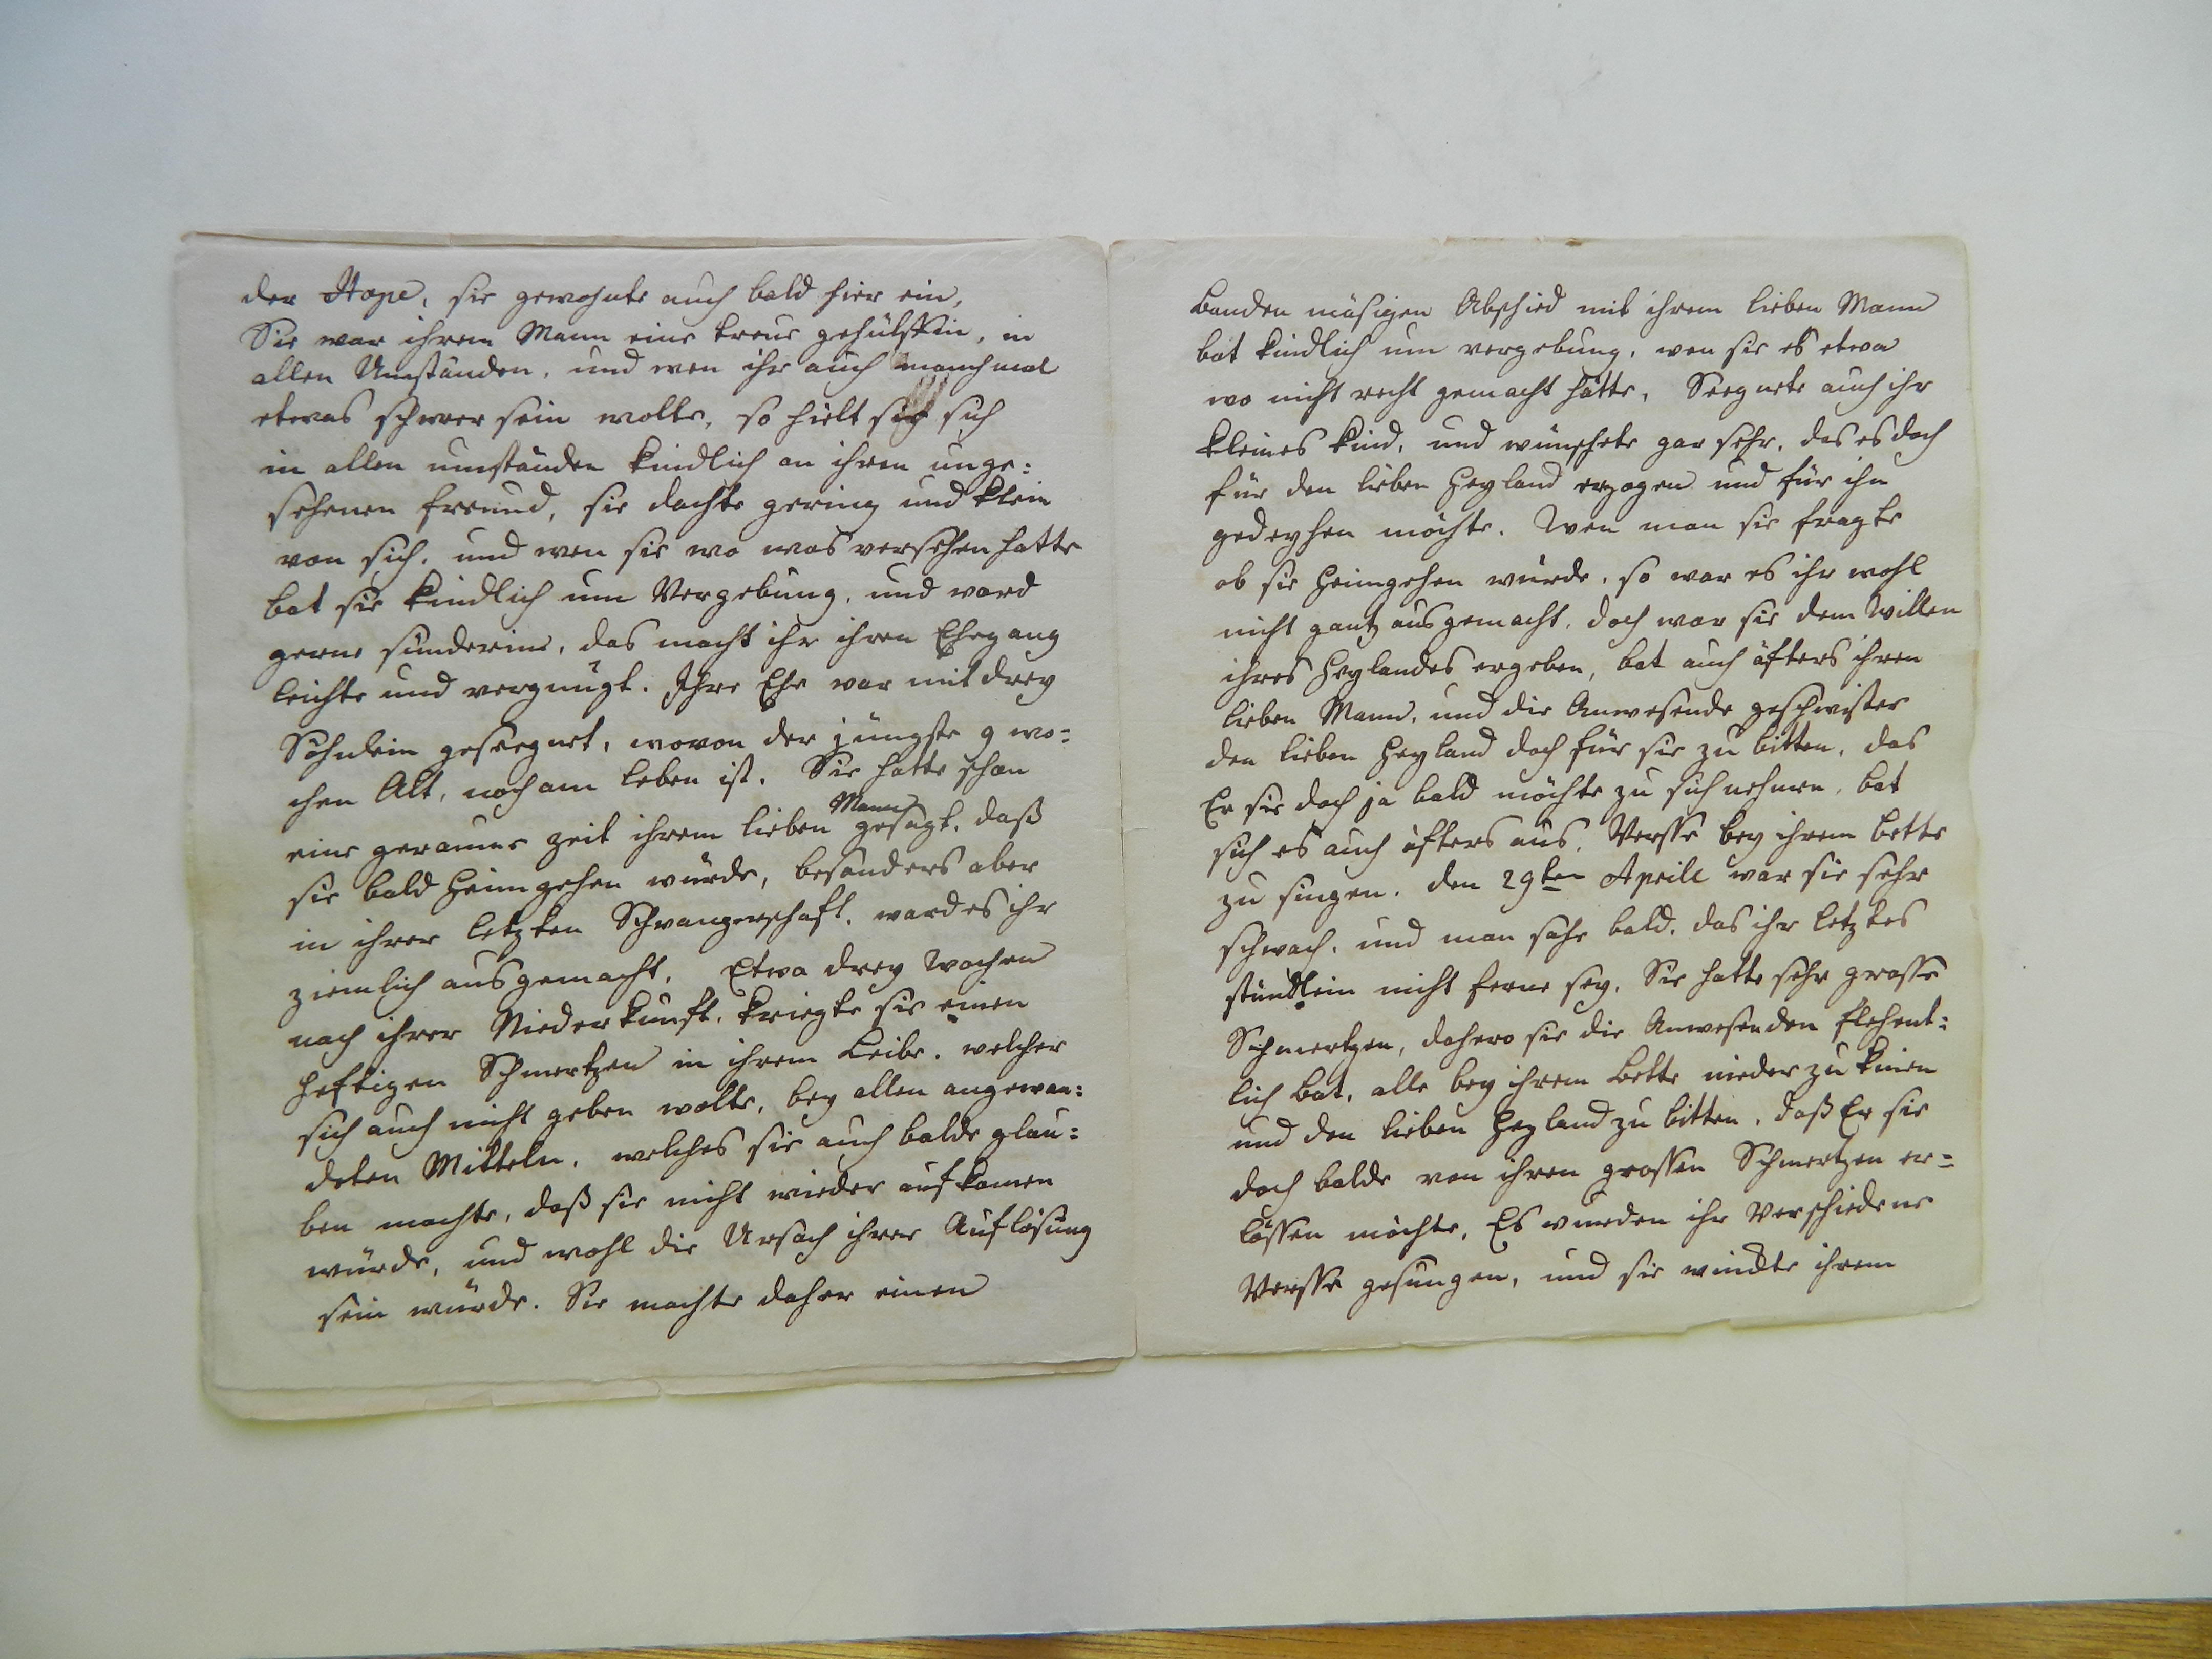 der Hope, sie gewohnte auch bald hier ein,
Sie war ihrem Mann eine treue gehülffin, in
allen Umständen, und wen ihr auch manchmal
etwas schwer sein wolte, so hielt sie sich
in allen umständen kindlich an ihren unge=
sehenen freund, sie dachte gering und klein
von sich, und wen sie wo was versehen hatte
bat sie kindlich um Vergebung, und ward
gerne sünderin, das macht ihr ihren Ehegang
leichte und vergnügt. Ihre Ehe war mit drey
Söhnlein geseegnet, wovon der jüngste 9 wo=
chen Alt, noch am leben ist. Sie hatte schon
eine geraume zeit ihrem lieben Mann gesagt, daß
sie bald heimgehen würde, besonders aber
in ihrer letzten Schwangerschaft, ward es ihr
ziemlich ausgemacht. Etwa drey wochen
nach ihrer Niederkunft, kriegte sie einen
heftigen Schmertzen in ihrem Leibe, welcher
sich auch nicht geben wolte, bey allen angewan=
deten Mitteln, welches sie auch balde glau=
ben machte, daß sie nicht wieder aufkomen
würde, und wohl die Ursach ihrer Auflösung
sein würde. Sie machte daher einen
Banden mäsigen Abschied mit ihrem lieben Mann
bat kindlich um vergebung, wen sie es etwa
wo nicht recht gemacht hätte, Seegnete auch ihr
kleines kind, und wünschete gar sehr, das es doch
für den lieben Heyland erzogen und für ihn
gedeyhen möchte. Wen man sie fragte
ob sie heimgehen würde, so war es ihr wohl
nicht gantz ausgemacht, doch war sie dem willen
ihres Heylandes ergeben, bat auch öfters ihren
lieben Mann, und die Anwesende geschwister
den lieben Heyland doch für sie zu bitten, das
Er sie doch ja bald möchte zu sich nehmen, bat
sich es auch öfters aus, Versse bey ihrem bette
zu singen. den 29ten Aprill war sie sehr
schwach, und man sahe bald, das ihr letztes
stündlein nicht ferne sey, Sie hatte sehr grosse
Schmertzen, dahero sie die Anwesenden flehent=
lich bat, alle bey ihrem Bette nieder zu knien
und den lieben Heyland zu bitten, daß Er sie
doch balde von ihren grossen Schmertzen er=
lössen möchte, Es wurden ihr Verschiedene
Versse gesungen, und sie winckte ihrem